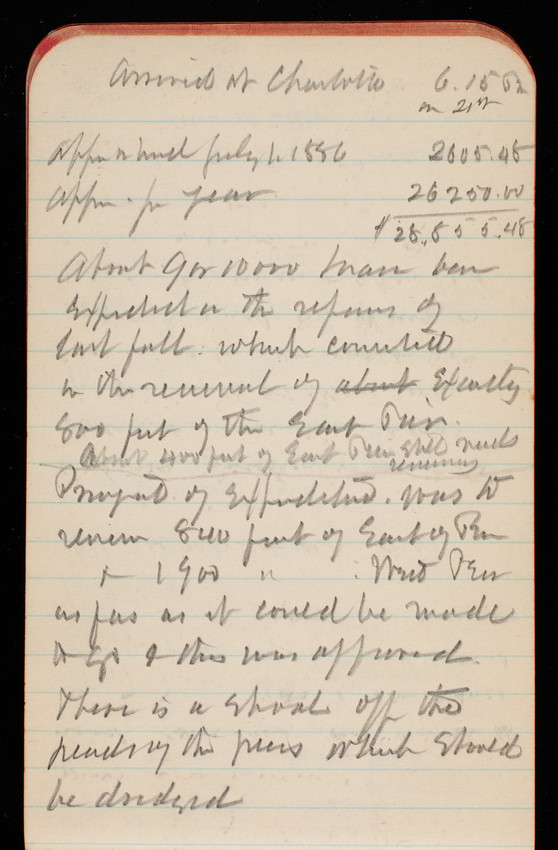 Arrived at Charlotte 6.15 Pm
on 21st
July 1. 1886 2605.48
Appn. for year 26250.00
$ 28,855.48
About 9 or 10000 have been
Expended on the repairs of
last fall. which consisted
in the renewal of about Exactly
800 feet of the East Pier.
About 400 feet of East Pier Still needs
renewing
Project of Expenditure. was to
renew 840 feet of East Pier
+ 1900 " West Pier
as far as it could be made
to go & this was approved.
There is a Shoal off the
heads of the piers which Should
be dredged